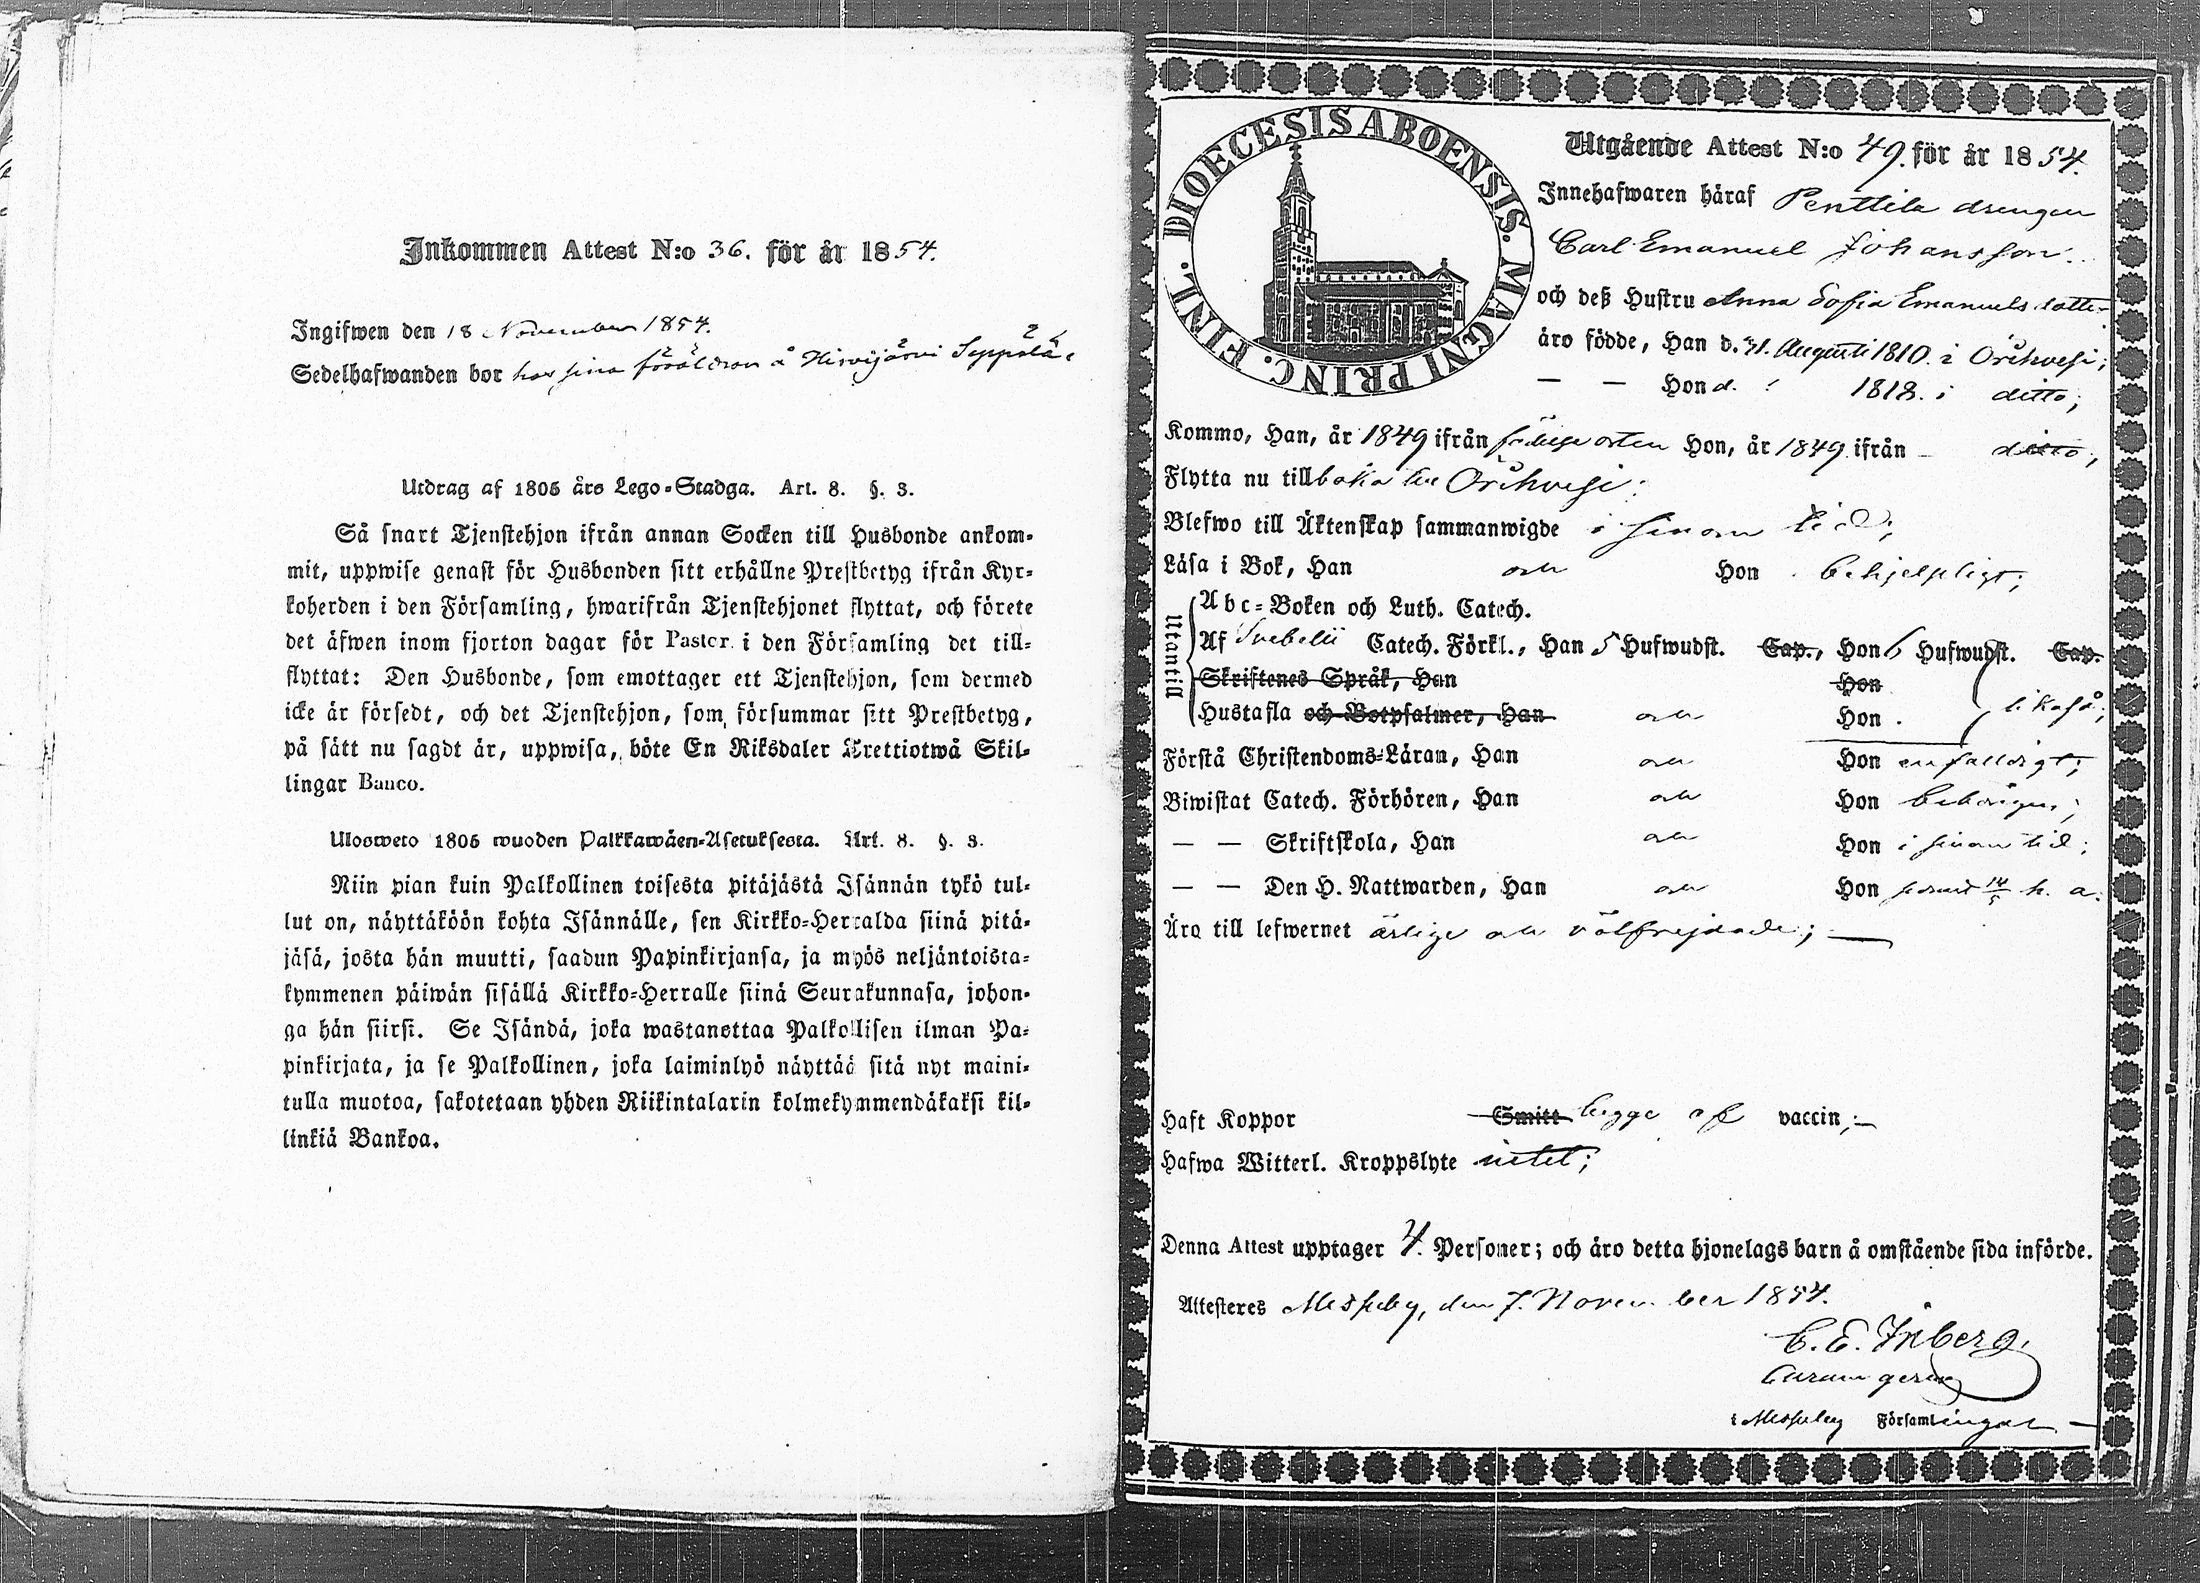 Inkommen Attest N:o 36. för år 1854.
Ingifwen den 18 November 1854.
Sedelhafwanden bor hos sina föräldrar å Hirvijärvi Seppälä
Utdrag af 1805 års Lego-Stadga. Art. 8. §. 3.
Så snart Tjenstehjon ifrån annan Socken till Husbonde ankom-
mit, uppwise genast för Husbonden sitt erhållne Prestbetyg ifrån Kyr-
koherden i den Församling, hwarifrån Tjenstehjonet flyttat, och förete
det äfwen inom fjorton dagar för Pastor i den Församling det till-
flyttat: Den Husbonde, som emottager ett Tjenstehjon, som dermed
icke är försedt, och det Tjenstehjon, som försummar sitt Prestbetyg,
på sätt nu sagdt är, uppwisa, böte En Riksdaler Trettiotwå Skil-
lingar Banco.
Ulosweto 1805 wuoden Palkkawäen-Asetuksesta. Art. 8. §. 3.
Niin pian kuin Palkollinen toisesta pitäjästä Isännän tykö tul-
lut on, näyttäköön kohta Isännälle, sen Kirkko-Herralda siinä pitä-
jäsä, josta hän muutti, saadun Papinkirjansa, ja myös neljäntoista-
kymmenen päiwän sisällä Kirkko-Herralle siinä Seurakunnasa, johon-
ga hän siirsi. Se Isändä, joka wastanottaa Palkollisen ilman Pa-
pinkirjata, ja se Palkollinen, joka laiminlyö näyttää sitä nyt maini-
tulla muotoa, sakotetaan yhden Riikintalarin kolmekymmendäkaksi kil-
linkiä Bankoa.
DIOECESIS ABOENSIS. MAGNI PRINC. FINL.
Utgående Attest N:o 49. för år 1854.
Innehafwaren häraf Penttilä drengen
Carl Emanuel Johansson
och deß Hustru Anna Sofia Emanuelsdotter
äro födde, Han d. 31. Augusti 1810. i Örihvesi;
— — Hon d. 1818. i ditto;
Kommo, Han, år 1849 ifrån födelse orten Hon, år 1849 ifrån – ditto;
Flytta nu till baka till Örihvesi:
Blefwo till Äktenskap sammanwigde i sinom tid;
Läsa i Bok, Han och Hon behjelpligt;
Utantill
Abc-Boken och Luth. Catech.
Af Svebelii Catech. Förkl., Han 5 Hufwudst. Cap., Hon 6 Hufwudst. Cap.
Skriftenes Språk, Han Hon
Hustafla och Botpsalmer, Han och Hon likaså;
Förstå Christendoms-Läran, Han och Hon enfaldigt;
Biwistat Catech. Förhören, Han och Hon behörigen;
— — Skriftskola, Han och Hon i sinom tid;
— — Den H. Nattwarden, Han och Hon senast 14/5 h. a.
Äro till lefwernet ärlige och välfrejdade;
Haft Koppor Smitt begge af vaccin;
Hafwa Witterl. Kroppslyte intet;
Denna Attest upptager 4. Personer; och äro detta hjonelags barn å omstående sida införde.
Attesteres Messuby, den 7. November 1854.
C. E. Inberg,
Curam gerens
i Messuby Församlingar